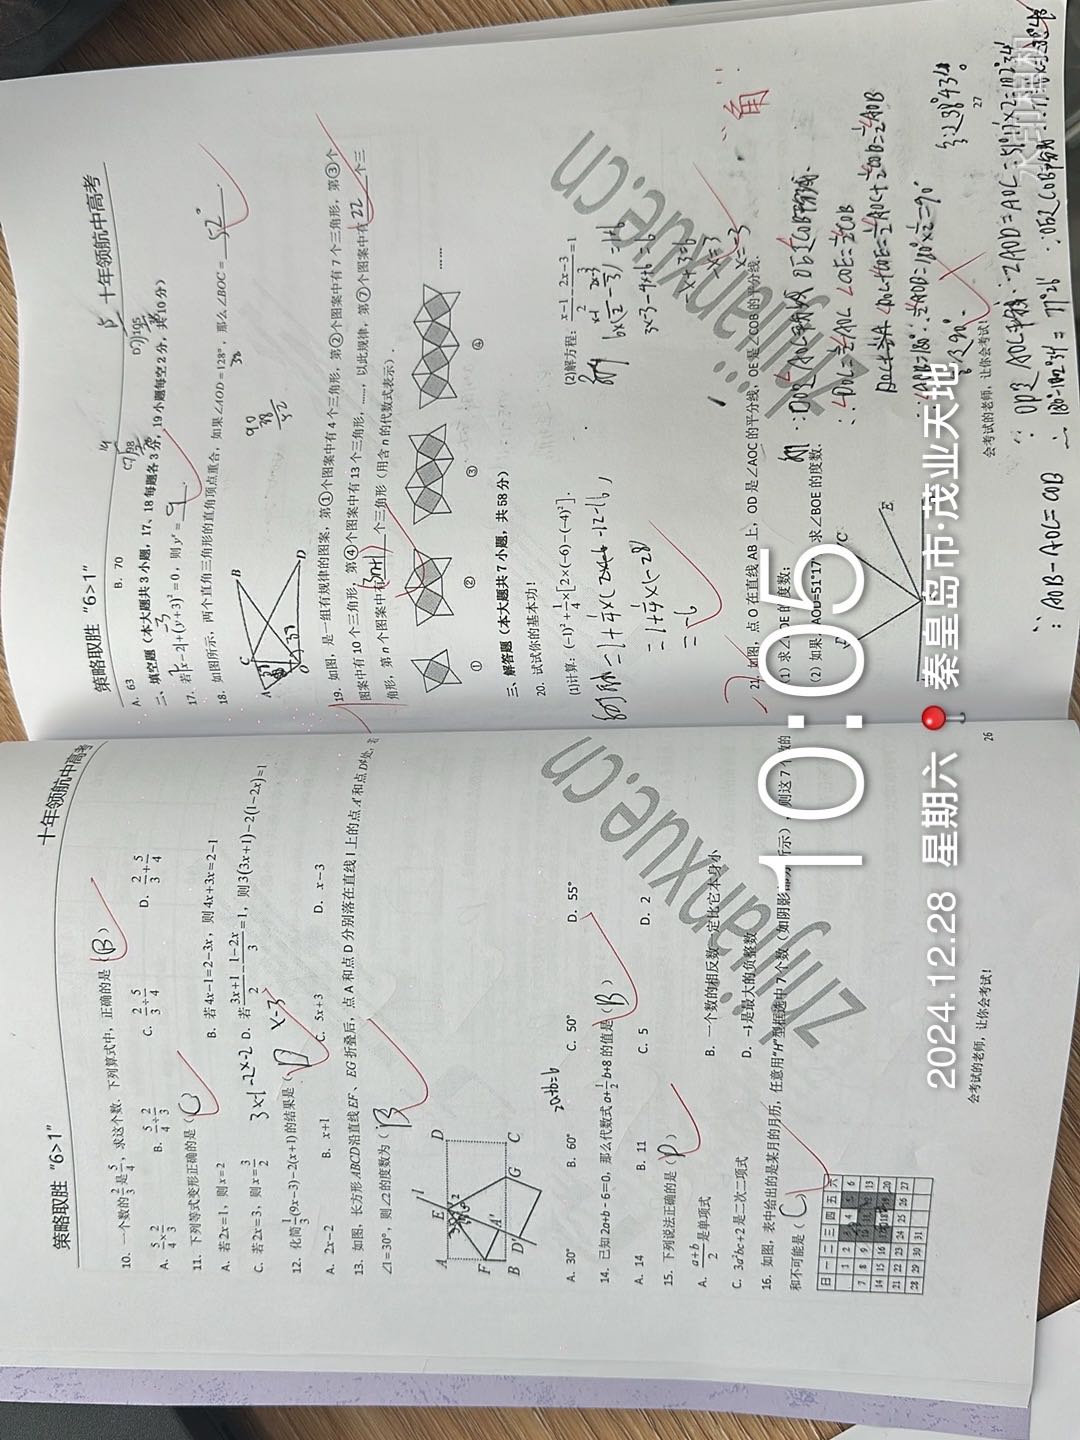 策略取胜 "6>1"
十年领航中高考
10. 一个数的2/3是5/4，求这个数．下列算式中，正确的是（B）
A. 5/4×2/3
B. 5/4÷2/3
C. 2/3÷5/4
D. 2/3+5/4
11. 下列等式变形正确的是（C）
A. 若2x=1，则x=2
B. 若4x-1=2-3x，则4x+3x=2-1
C. 若2x=3，则x=3/2
D. 若(3x+1)/2-(1-2x)/3=1，则3(3x+1)-2(1-2x)=1
3x-1-2x-2
x-3
12. 化简1/3(9x-3)-2(x+1)的结果是（D）
A. 2x-2
B. x+1
C. 5x+3
D. x-3
13. 如图，长方形ABCD沿直线EF、EG折叠后，点A和点D分别落在直线l上的点A'和点D'处，若
∠1=30°，则∠2的度数为（B）
A
E
l
D
F
A'
G
B
D'
C
A. 30°
B. 60°
C. 50°
D. 55°
2a+b=6
14. 已知2a+b-6=0，那么代数式a+1/2b+8的值是（B）
A. 14
B. 11
C. 5
D. 2
15. 下列说法正确的是（D）
A. (a+b)/2是单项式
B. 一个数的相反数一定比它本身小
C. 3a²bc+2是二次二项式
D. -1是最大的负整数
16. 如图，表中给出的是某月的月历，任意用"H"型框选中7个数（如阴影部分所示），则这7个数的
和不可能是（C）
日 一 二 三 四 五 六
1 2 3 4 5 6
7 8 9 10 11 12 13
14 15 16 17 18 19 20
21 22 23 24 25 26 27
28 29 30 31
会考试的老师，让你会考试！
26
策略取胜 "6>1"
十年领航中高考
A. 63
B. 70
二、填空题（本大题共3小题，17、18每题各3分，19小题每空2分，共10分）
17. 若|x-2|+(y+3)²=0，则yˣ=9
18. 如图所示，两个直角三角形的直角顶点重合，如果∠AOD=128°，那么∠BOC=52°
38
90
38
52
B
C
A
D
19. 如图，是一组有规律的图案，第①个图案中有4个三角形，第②个图案中有7个三角形，第③个
图案中有10个三角形，第④个图案中有13个三角形，……，以此规律，第⑦个图案中有22个三
角形，第n个图案中有(3n+1)个三角形（用含n的代数式表示）.
①
②
③
④
……
三、解答题（本大题共7小题，共58分）
20. 试试你的基本功！
(1)计算：(-1)²+1/4×[2×(-6)-(-4)²].
=1+1/4×(-28)
=-6
(2)解方程：(x-1)/2-(2x-3)/3=1
x+3=6
x=3
x=-3
21. 如图，点O在直线AB上，OD是∠AOC的平分线，OE是∠COB的平分线.
(1) 求∠DOE的度数；
(2) 如果∠AOD=51°17'，求∠BOE的度数.
D
C
E
"角"
∵OD是∠AOC平分线 OE是COB平分线
∴∠DOC=1/2AOC ∠COE=1/2COB
会考试的老师，让你会考试！
27
∴AOB-AOC=COB
zhijianxue.cn
zhijianxue.cn
10:05
2024.12.28 星期六 秦皇岛市·茂业天地